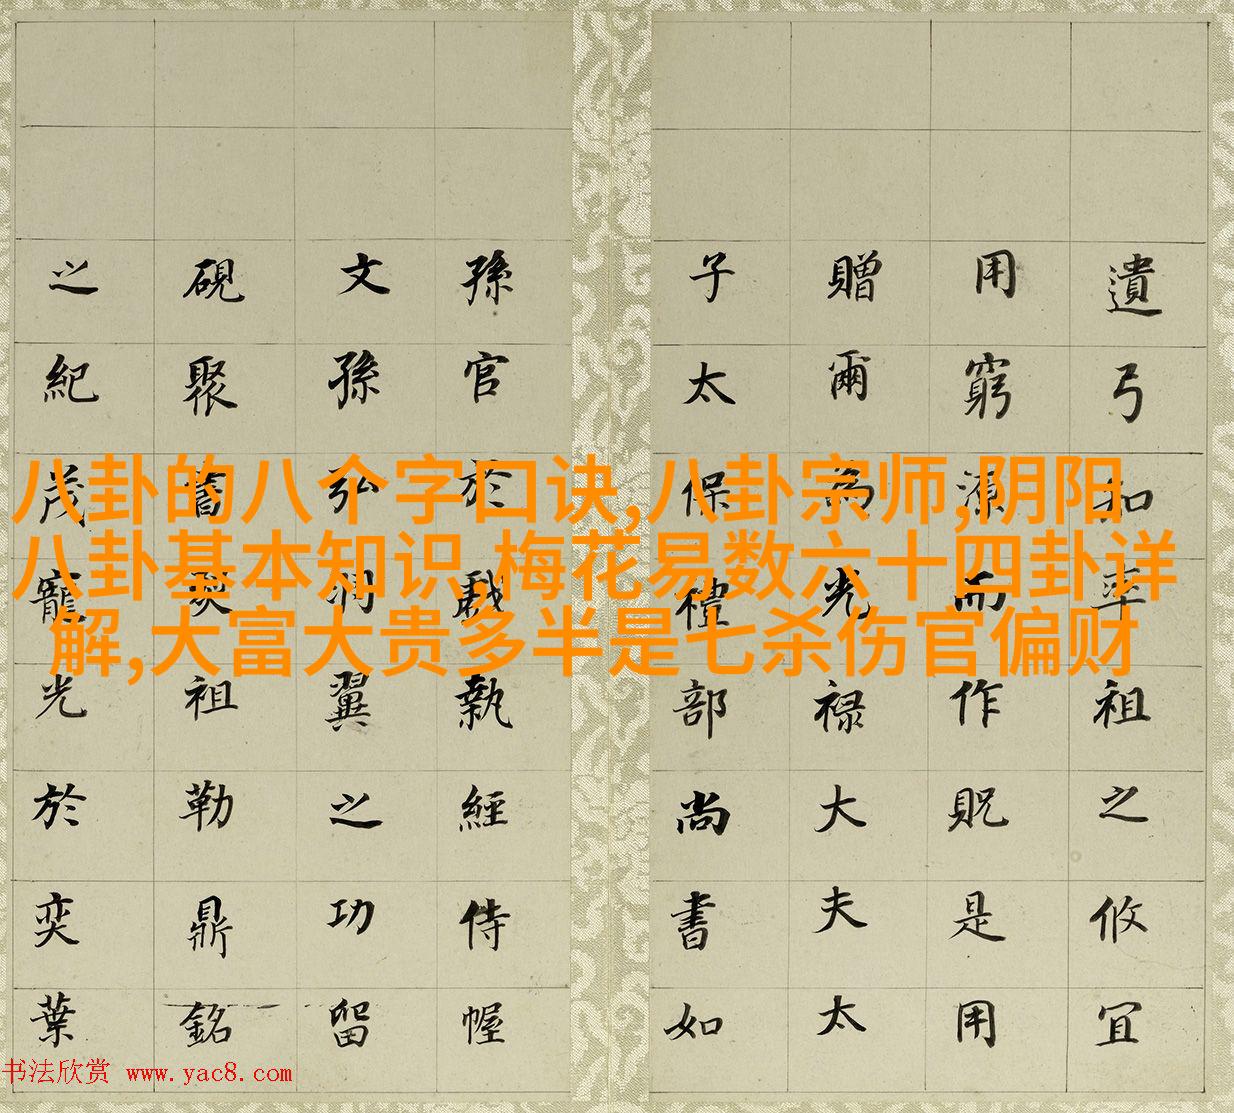 遺弓率祖之攸宜
用窮源而作貺是用
贈爾為光祿大夫太
子太保禮部尚書如
孫官於戲執經侍幄
文孫弘潤翼之功留
硯聚舊祖勒鼎銘
之紀茂寵光於奕葉
八卦的八个字口诀,八卦宗师,阴阳
八卦基本知识,梅花易数六十四卦详
解,大富大贵多半是七杀伤官偏财
书法欣赏 www.yac8.com